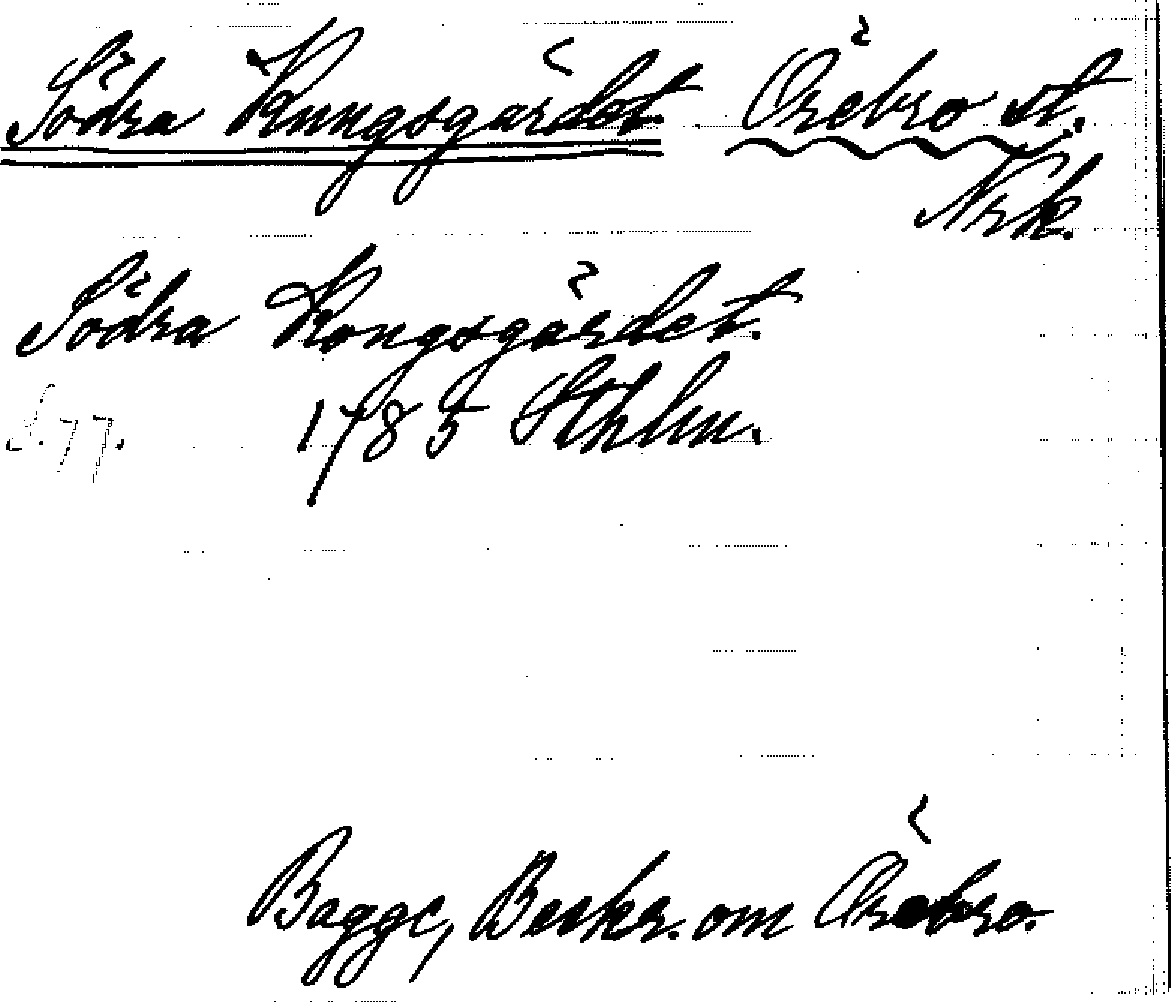 Södra Kungsgärdet Örebro st.
Nrk.
Södra Kongsgärdet.
S. 77. 1785 Sthlm.
Bagge, Beskr. om Örebro.